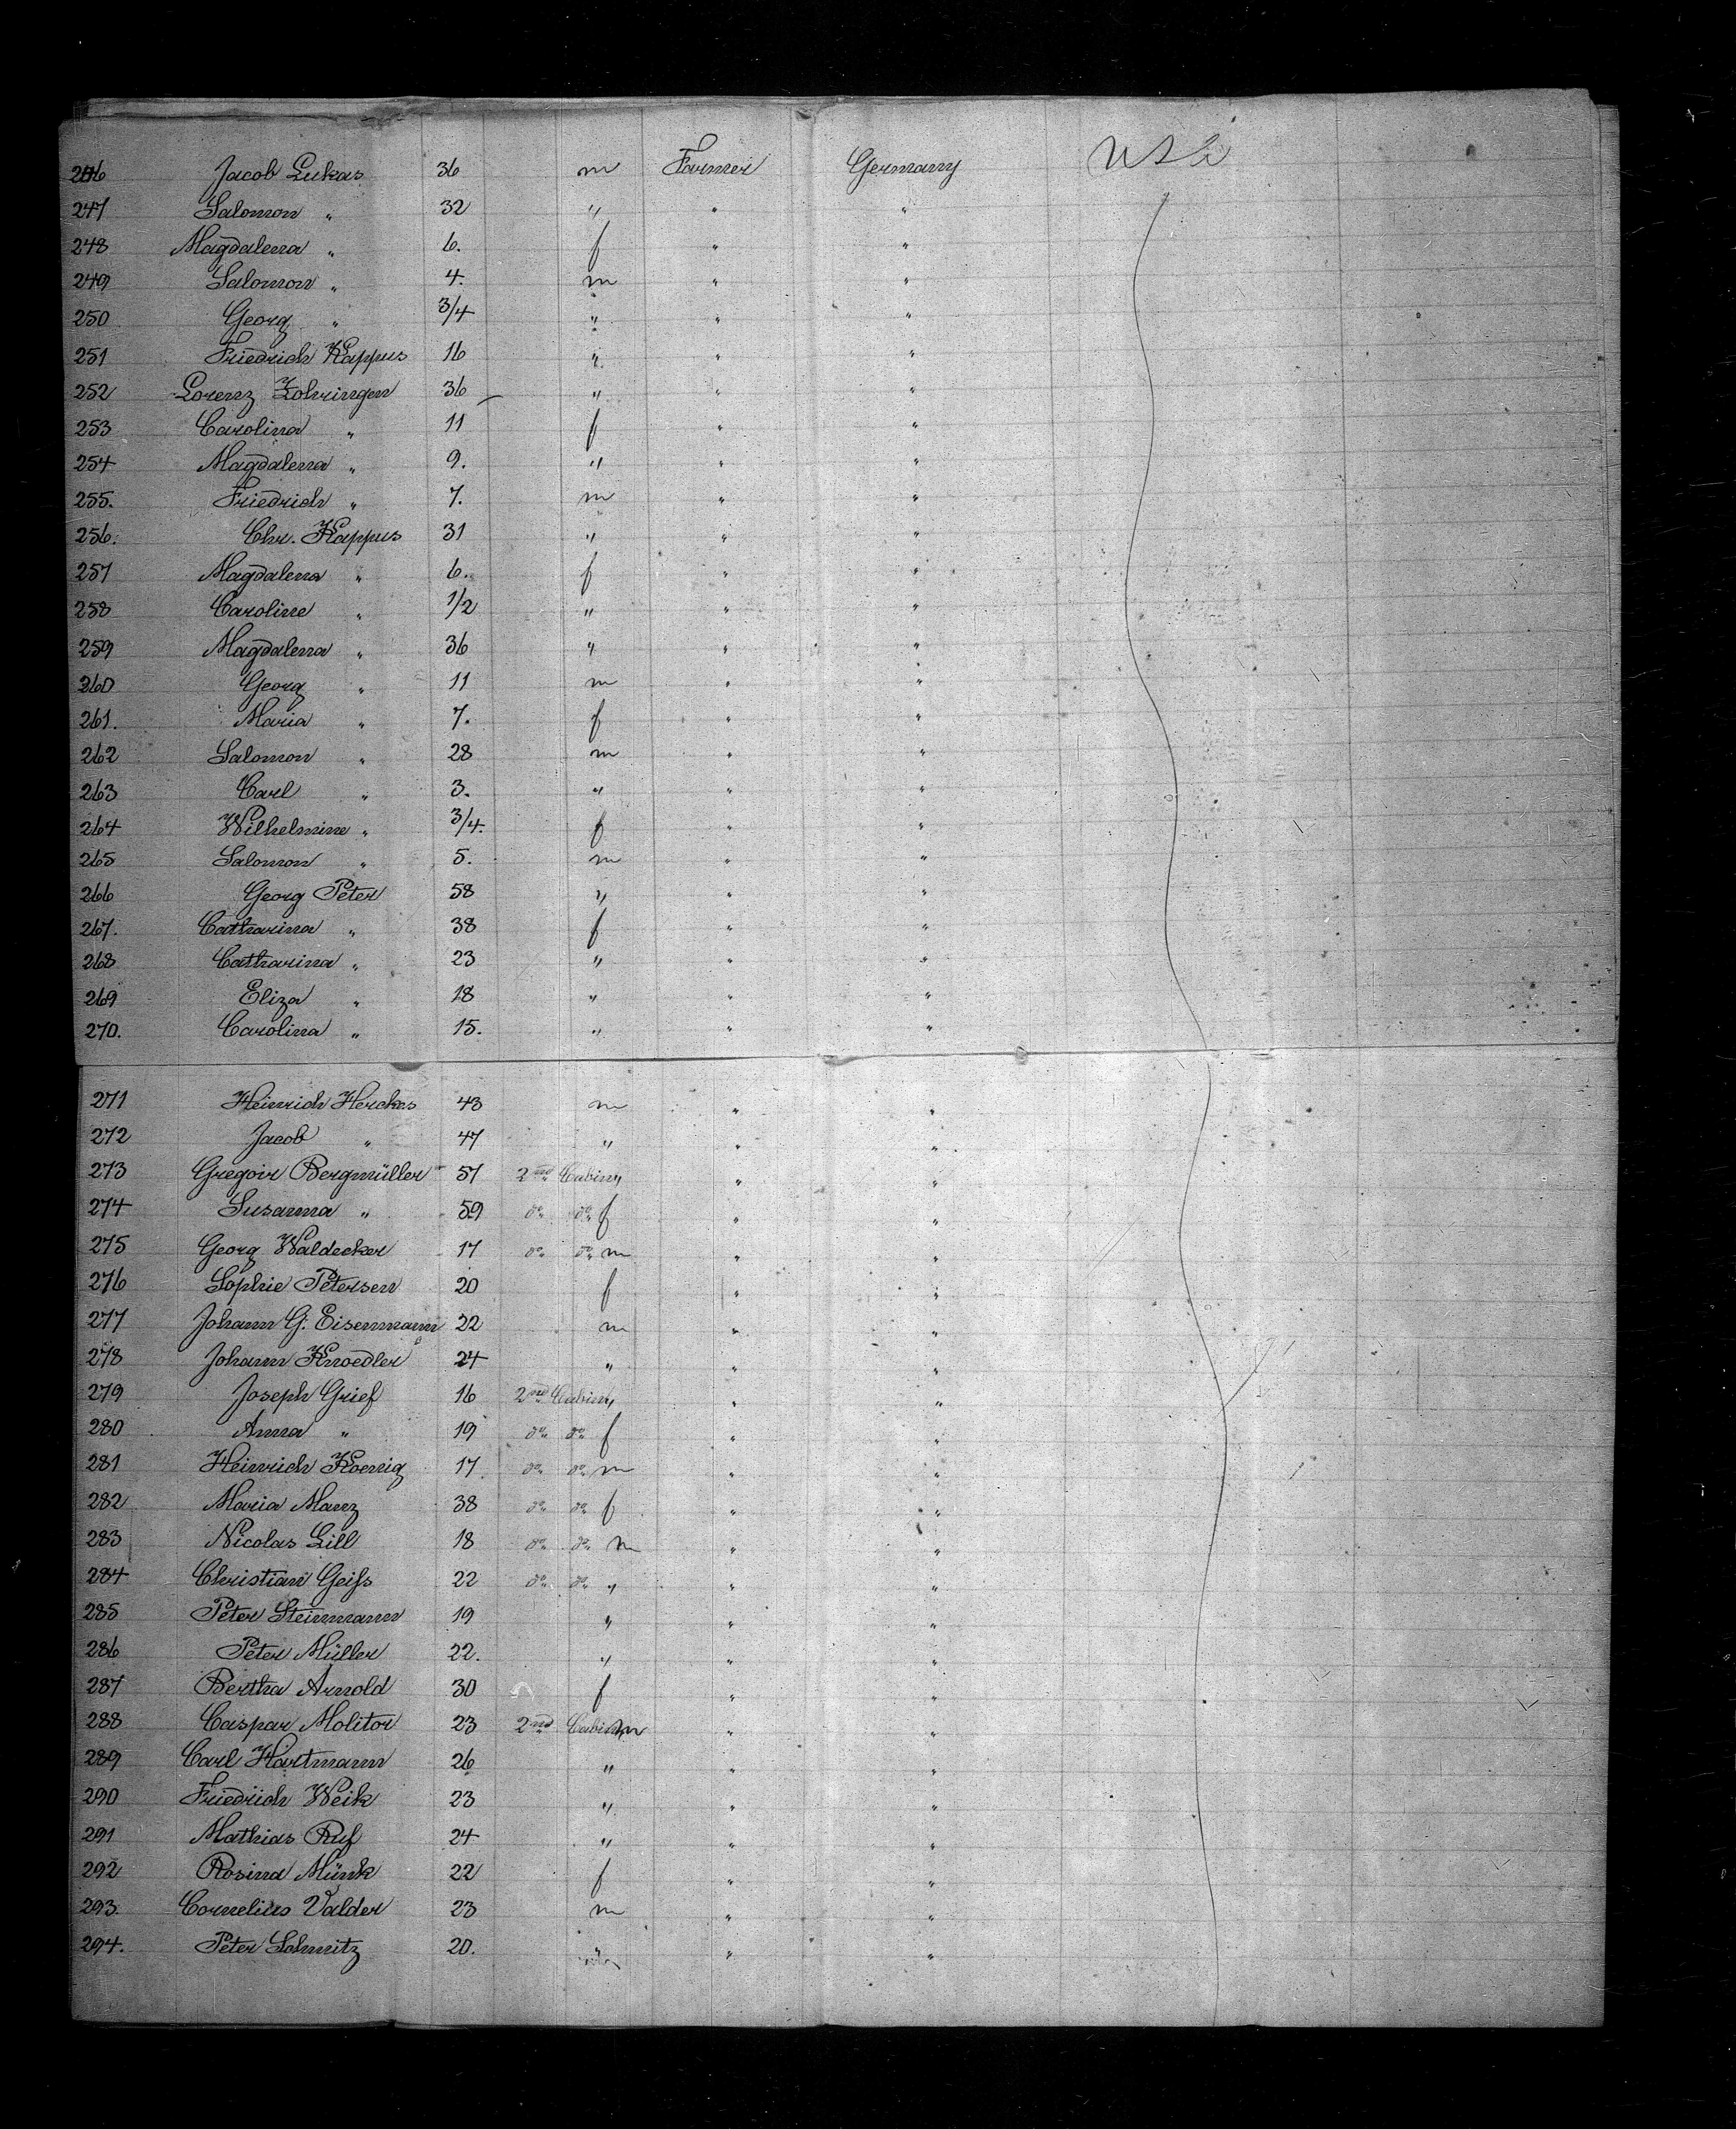 246 Jacob Lukas 36 m Farmer Germany USA
247 Salomon " 32 " " "
248 Magdalena " 6. f " "
249 Salomon " 4. m " "
250 Georg " 3/4 " " "
251 Friedrich Kappus 16 " " "
252 Lorenz Zohringen 36 " " "
253 Carolina " 11 f " "
254 Magdalena " 9. " " "
255. Friedrich " 7. m " "
256. Chr. Kappus 31 " " "
257 Magdalena " 6. f " "
258 Caroline " 1/2 " " "
259 Magdalena " 36 " " "
260 Georg " 11 m " "
261. Maria " 7. f " "
262 Salomon " 28 m " "
263 Carl " 3. " " "
264 Wilhelmine " 3/4. f " "
265 Salomon " 5. m " "
266 Georg Peter 58 " " "
267. Catharina " 38 f " "
268 Catharina " 23 " " "
269 Eliza " 18 " " "
270. Carolina " 15. " " "
271 Heinrich Herckes 43 m " "
272 Jacob " 47 " " "
273 Gregoir Bergmüller 57 2nd Cabin " " "
274 Susanna " 59 do do f " "
275 Georg Waldecker 17 do do m " "
276 Sophie Petersen 20 f " "
277 Johann G. Eisenmann 22 m " "
278 Johann Knoedler 24 " " "
279 Joseph Grief 16 2nd Cabin " " "
280 Anna " 19 do do f " "
281 Heinrich Koenig 17 do do m " "
282 Maria Manz 38 do do f " "
283 Nicolas Lill 18 do do m " "
284 Christian Geiß 22 do do " " "
285 Peter Steinmann 19 " " "
286 Peter Müller 22. " " "
287 Bertha Arnold 30 f " "
288 Caspar Molitor 23 2nd Cabin m " "
289 Carl Hartmann 26 " " "
290 Friedrich Weik 23 " " "
291 Mathias Ruf 24 " " "
292 Rosina Münk 22 f " "
293. Cornelius Valder 23 m " "
294. Peter Schmitz 20. " " "